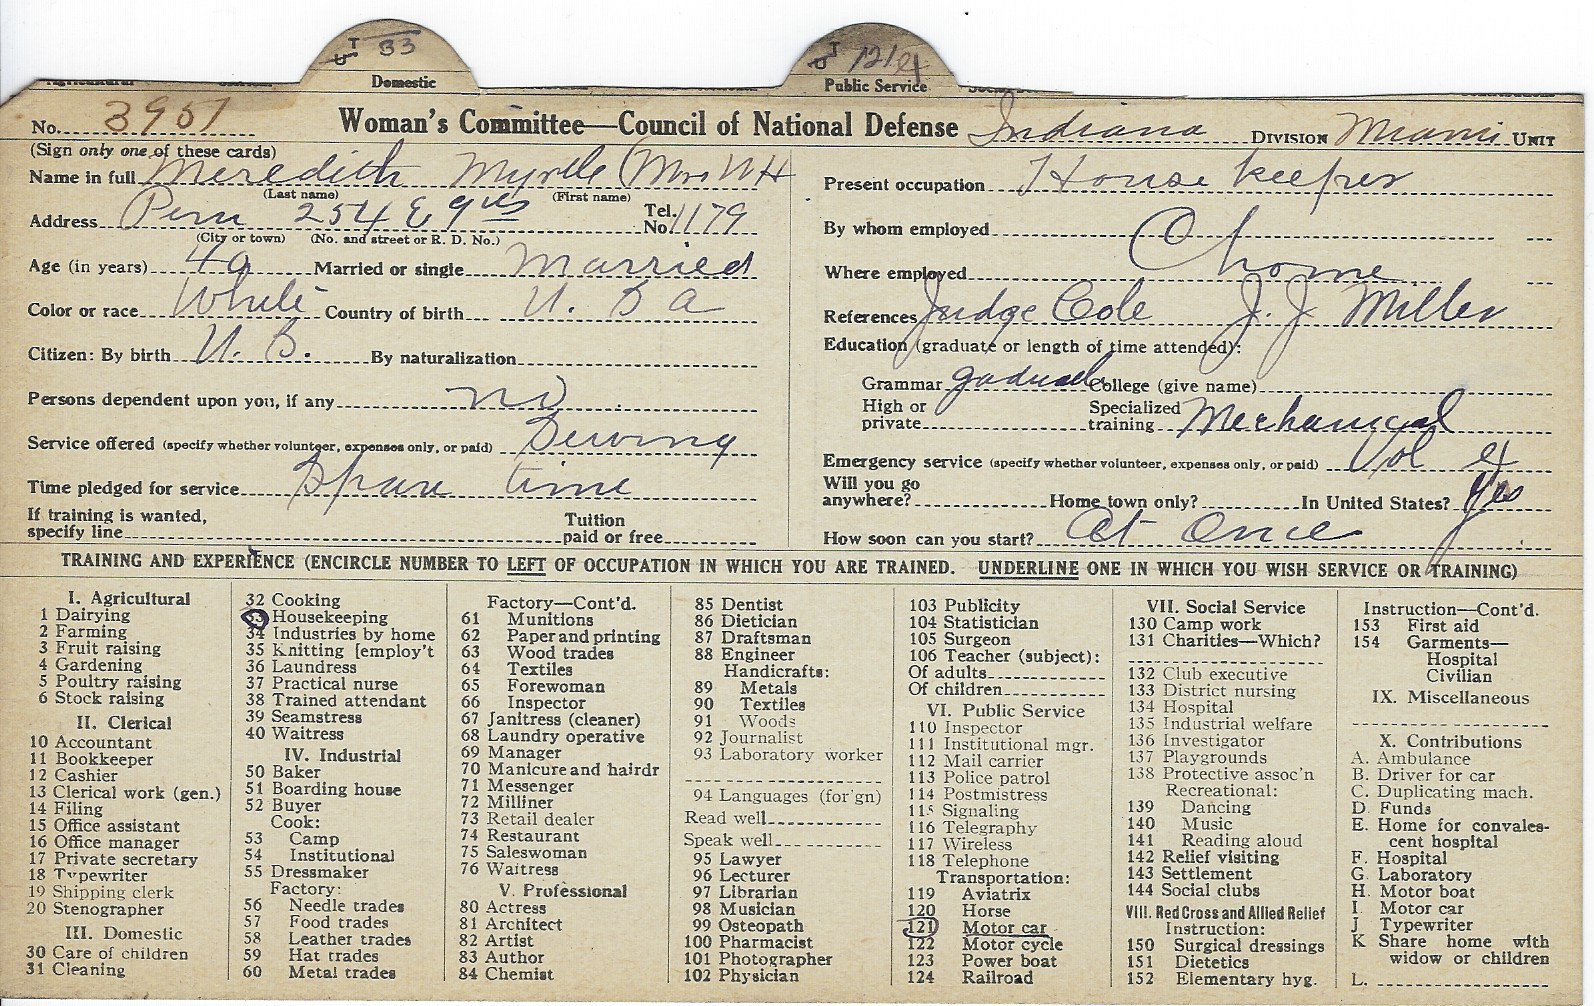 T 33
U
Domestic
T 121 ex
U
Public Service
No. 3951
Woman's Committee—Council of National Defense Indiana DIVISION Miami UNIT
(Sign only one of these cards)
Name in full Meredith Myrtle (Mrs W H
(Last name) (First name)
Address Peru 254 E 9 Tel. No. 1179
(City or town) (No. and street or R. D. No.)
Age (in years) 40 Married or single Married
Color or race White Country of birth U. S a
Citizen: By birth U. S. By naturalization
Persons dependent upon you, if any no
Service offered (specify whether volunteer, expenses only, or paid) Sewing
Time pledged for service Spare time
If training is wanted, specify line Tuition paid or free
Present occupation House keeper
By whom employed
Where employed home
References Judge Cole J. J. Miller
Education (graduate or length of time attended):
Grammar College (give name)
High or private Specialized training Mechanical
Emergency service (specify whether volunteer, expenses only, or paid) Vol ex
Will you go anywhere? Home town only? In United States? Yes
How soon can you start? At once
TRAINING AND EXPERIENCE (ENCIRCLE NUMBER TO LEFT OF OCCUPATION IN WHICH YOU ARE TRAINED. UNDERLINE ONE IN WHICH YOU WISH SERVICE OR TRAINING)
I. Agricultural
1 Dairying
2 Farming
3 Fruit raising
4 Gardening
5 Poultry raising
6 Stock raising
II. Clerical
10 Accountant
11 Bookkeeper
12 Cashier
13 Clerical work (gen.)
14 Filing
15 Office assistant
16 Office manager
17 Private secretary
18 Typewriter
19 Shipping clerk
20 Stenographer
III. Domestic
30 Care of children
31 Cleaning
32 Cooking
33 Housekeeping
34 Industries by home
35 Knitting [employ't
36 Laundress
37 Practical nurse
38 Trained attendant
39 Seamstress
40 Waitress
IV. Industrial
50 Baker
51 Boarding house
52 Buyer
Cook:
53 Camp
54 Institutional
55 Dressmaker
Factory:
56 Needle trades
57 Food trades
58 Leather trades
59 Hat trades
60 Metal trades
Factory—Cont'd.
61 Munitions
62 Paper and printing
63 Wood trades
64 Textiles
65 Forewoman
66 Inspector
67 Janitress (cleaner)
68 Laundry operative
69 Manager
70 Manicure and hairdr
71 Messenger
72 Milliner
73 Retail dealer
74 Restaurant
75 Saleswoman
76 Waitress
V. Professional
80 Actress
81 Architect
82 Artist
83 Author
84 Chemist
85 Dentist
86 Dietician
87 Draftsman
88 Engineer
Handicrafts:
89 Metals
90 Textiles
91 Woods
92 Journalist
93 Laboratory worker
94 Languages (for'gn)
Read well
Speak well
95 Lawyer
96 Lecturer
97 Librarian
98 Musician
99 Osteopath
100 Pharmacist
101 Photographer
102 Physician
103 Publicity
104 Statistician
105 Surgeon
106 Teacher (subject):
Of adults
Of children
VI. Public Service
110 Inspector
111 Institutional mgr.
112 Mail carrier
113 Police patrol
114 Postmistress
115 Signaling
116 Telegraphy
117 Wireless
118 Telephone
Transportation:
119 Aviatrix
120 Horse
121 Motor car
122 Motor cycle
123 Power boat
124 Railroad
VII. Social Service
130 Camp work
131 Charities—Which?
132 Club executive
133 District nursing
134 Hospital
135 Industrial welfare
136 Investigator
137 Playgrounds
138 Protective assoc'n
Recreational:
139 Dancing
140 Music
141 Reading aloud
142 Relief visiting
143 Settlement
144 Social clubs
VIII. Red Cross and Allied Relief
Instruction:
150 Surgical dressings
151 Dietetics
152 Elementary hyg.
Instruction—Cont'd.
153 First aid
154 Garments—
Hospital
Civilian
IX. Miscellaneous
X. Contributions
A. Ambulance
B. Driver for car
C. Duplicating mach.
D. Funds
E. Home for convales-
cent hospital
F. Hospital
G. Laboratory
H. Motor boat
I. Motor car
J Typewriter
K Share home with
widow or children
L.